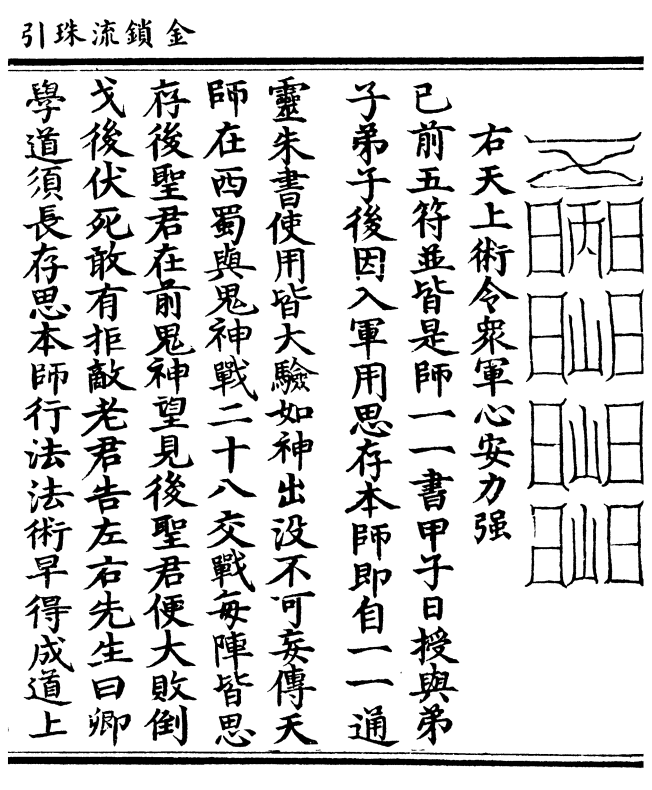 金鎖流珠引
右天上術令衆軍心安力强
已前五符並皆是師一一書甲子日授與弟
子弟子後因入軍用思存本師即自一一通
靈朱書使用皆大驗如神出没不可妄傳天
師在西蜀與鬼神戰二十八交戰每陣皆思
存後聖君在前鬼神望見後聖君便大敗倒
戈後伏死敢有拒敵老君告左右先生曰卿
學道須長存思本師行法法術早得成道上